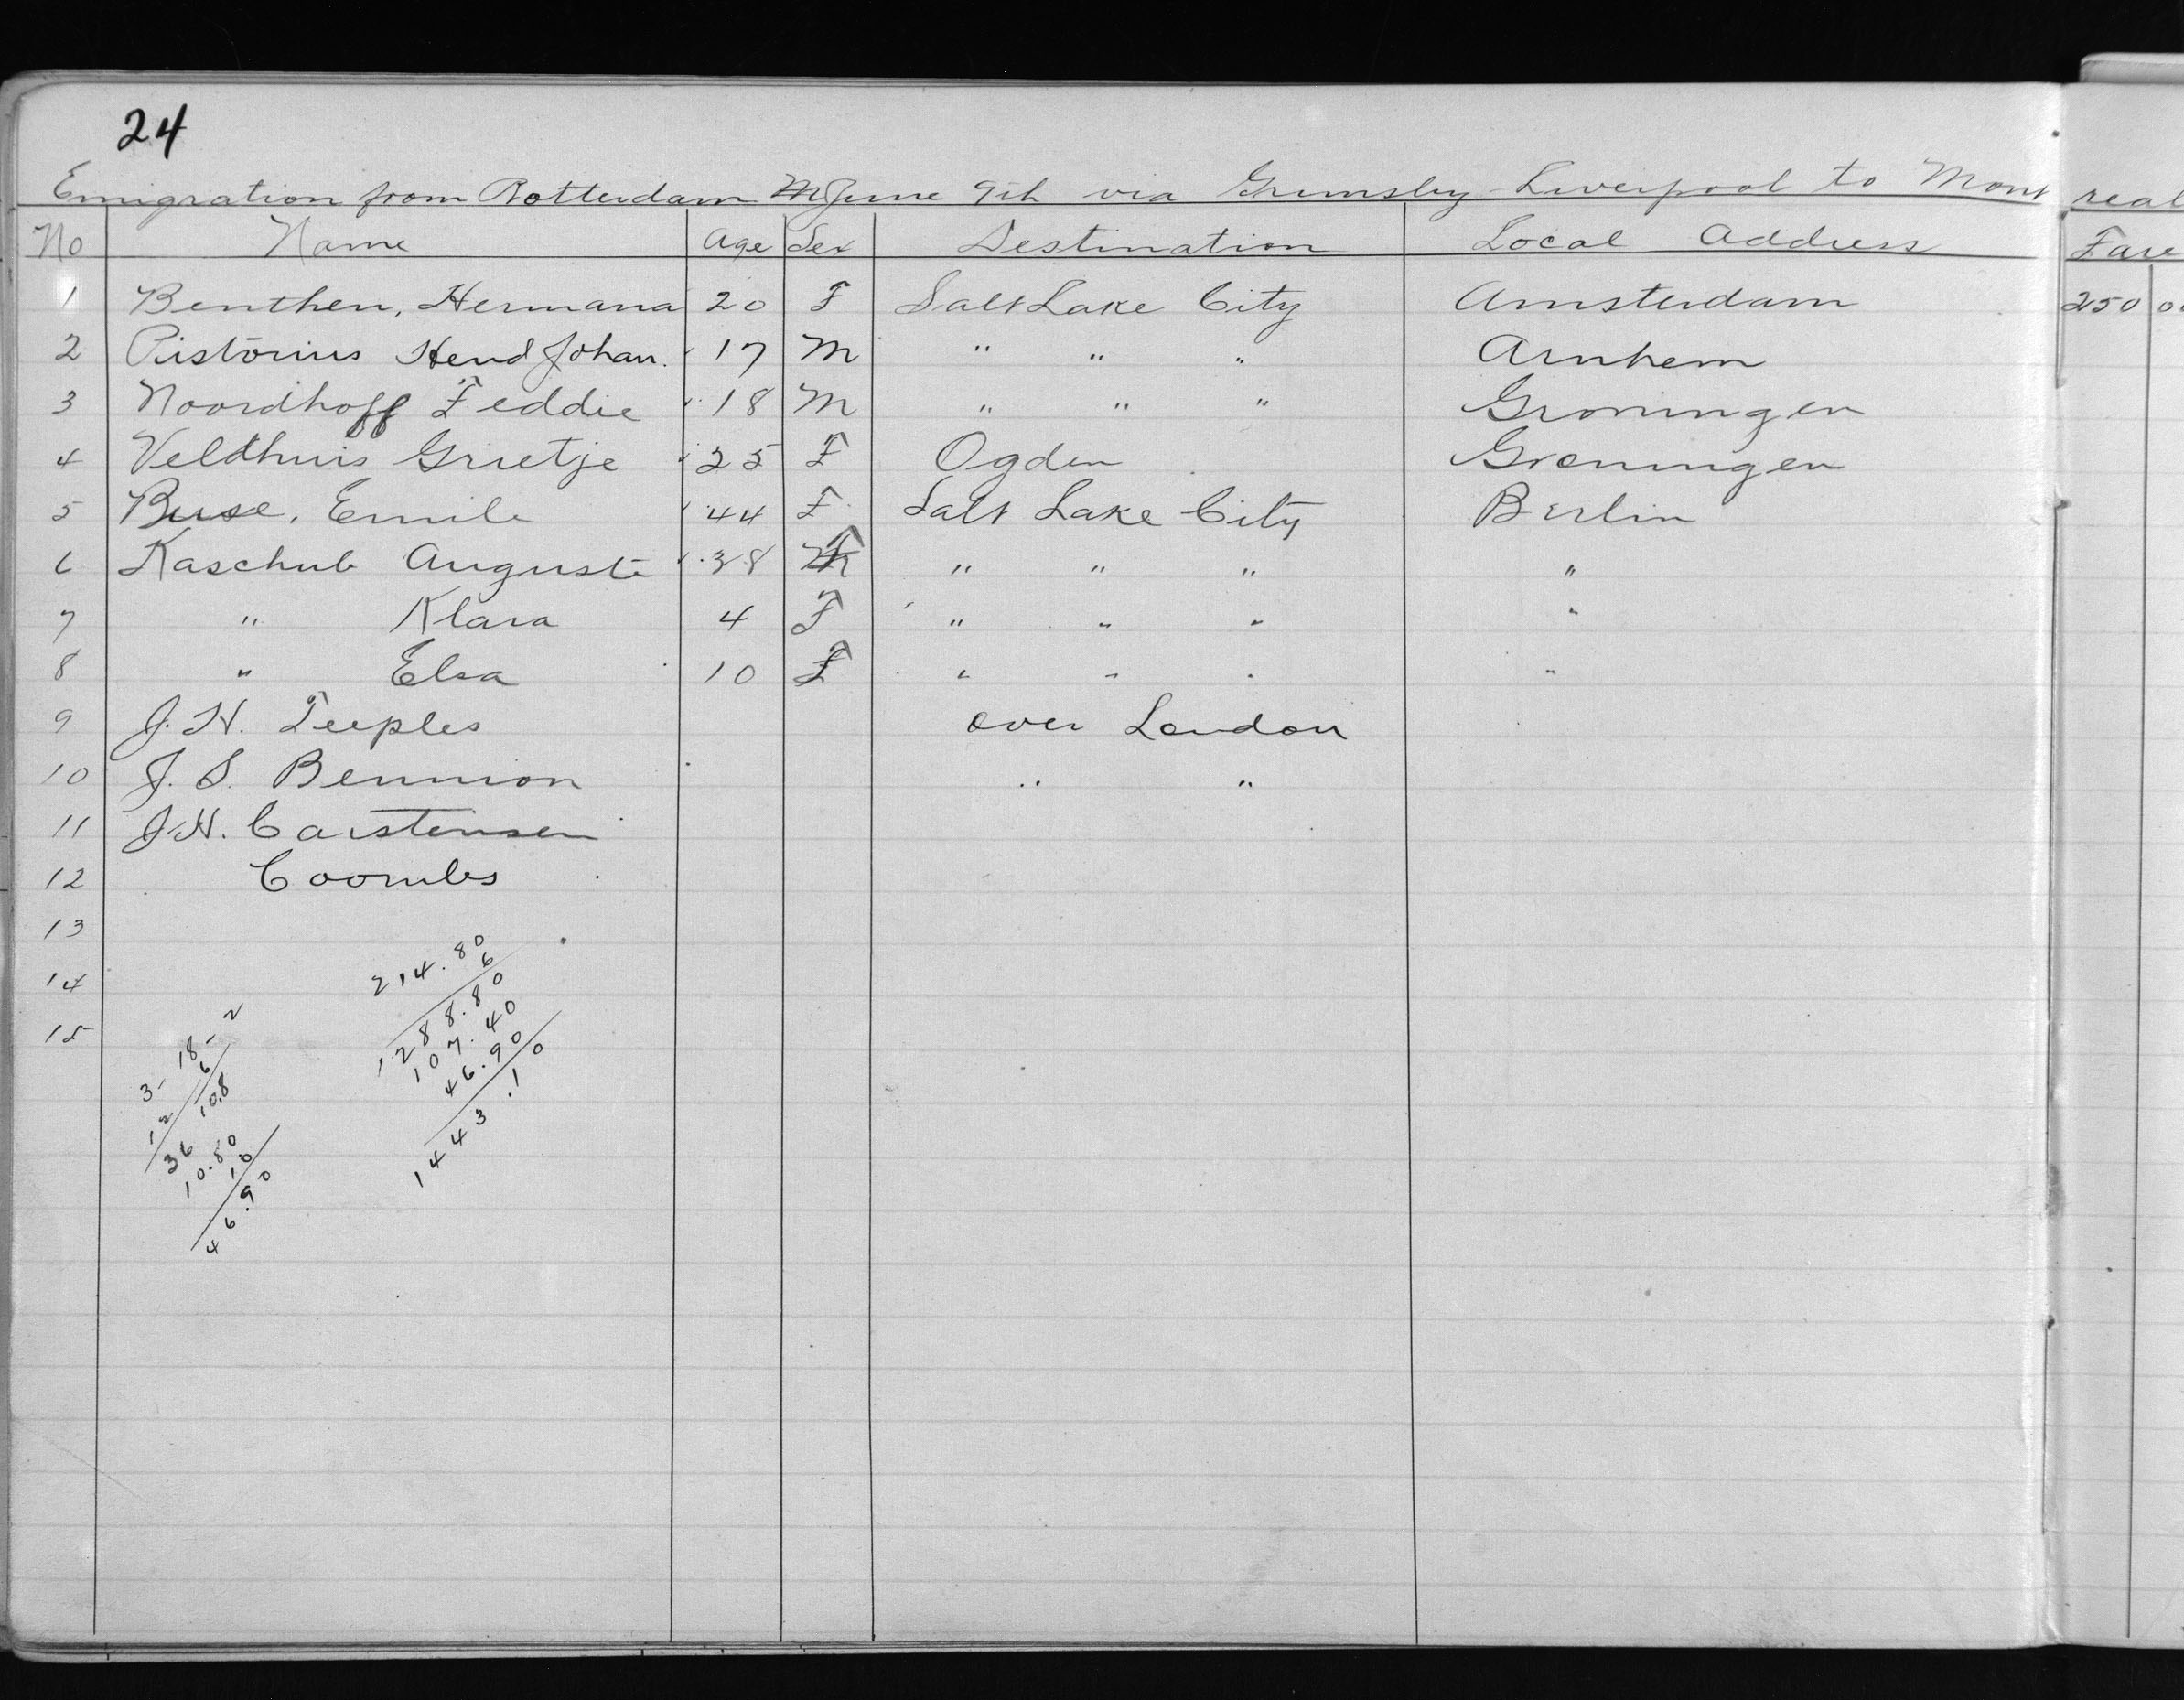 24
Emigration from Rotterdam June 9th via Grimsby-Liverpool to Mont real
No Name Age Sex Destination Local Address Fare
1 Benthen, Hermana 20 F Salt Lake City Amsterdam 250
2 Pistorius Hend Johan. 17 M " " " Arnhem
3 Noordhoff Feddie 18 M " " " Groningen
4 Veldhuis Grietje 25 F Ogden Groningen
5 Buse, Emile 44 F Salt Lake City Berlin
6 Kaschub Auguste 38 F " " " "
7 " Klara 4 F " " " "
8 " Elsa 10 F " " " "
9 J. H. Teeples over London
10 J. S. Bennion " "
11 J. H. Carstensen
12 Coombs
13
14
15
214.80
6
1288.80
107.40
46.90
1443.10
3-18-2
12 6
36 10.8
10.80
10
46.90